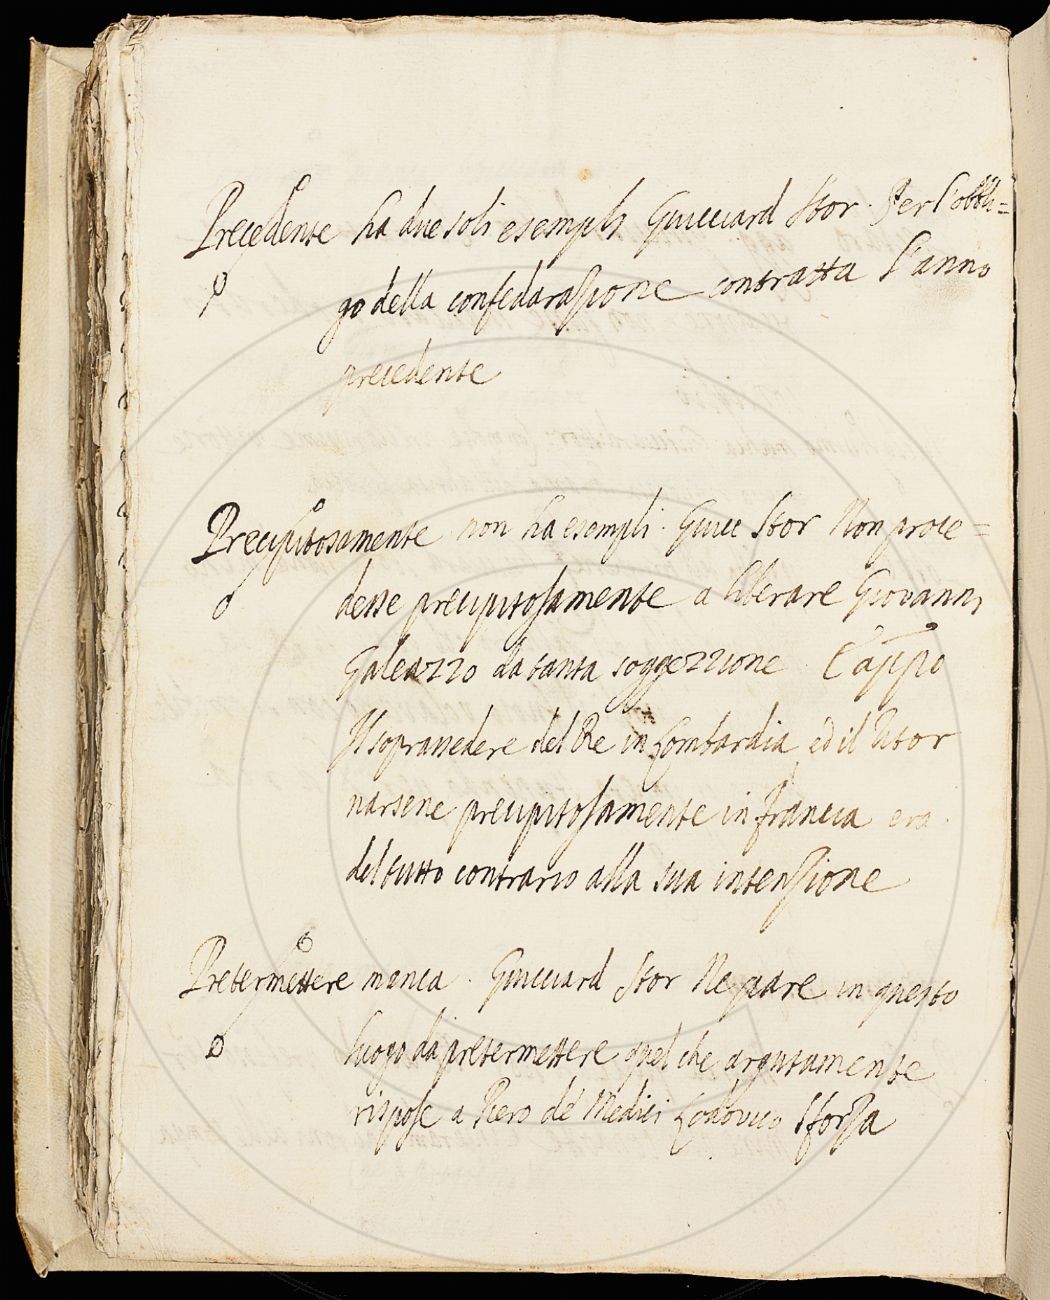 Precedente ha due soli esempli Guicciard Stor. Per l'obbli=
go della confedarazione contratta l'anno
precedente
Precipitosamente non ha esempli. Guicc Stor Non proce=
desse precipitosamente a liberare Giovanni
Galeazzo da tanta soggezzione E appo
Il soprassedere del Re in Lombardia ed il ritor
narsene precipitosamente in francia era
del tutto contrario alla sua intenzione
Pretermettere manca. Guicciard Stor Ne pare in questo
luogo da pretermettere quel che argutamente
rispose a Piero de' Medici Lodovico Sforza